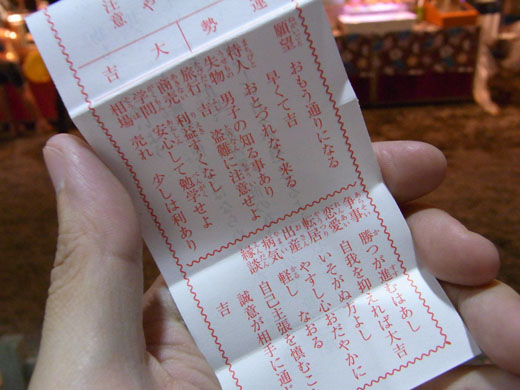 運勢
大吉
注意
願望 おもう通りになる
早くて吉
待人 おとづれなく来る
失物 男子の知る事あり
旅行 吉 盗難に注意せよ
商売 利益すくなし
学問 安心して勉学せよ
相場 売れ 少しは利あり
争事 勝つが進むはあし
恋愛 自我を抑えれば大吉
転居 いそがぬ方よし
出産 やすし おだやかに
病気 軽し なおる
縁談 自己主張を慎むこ
誠意が相手に通
吉